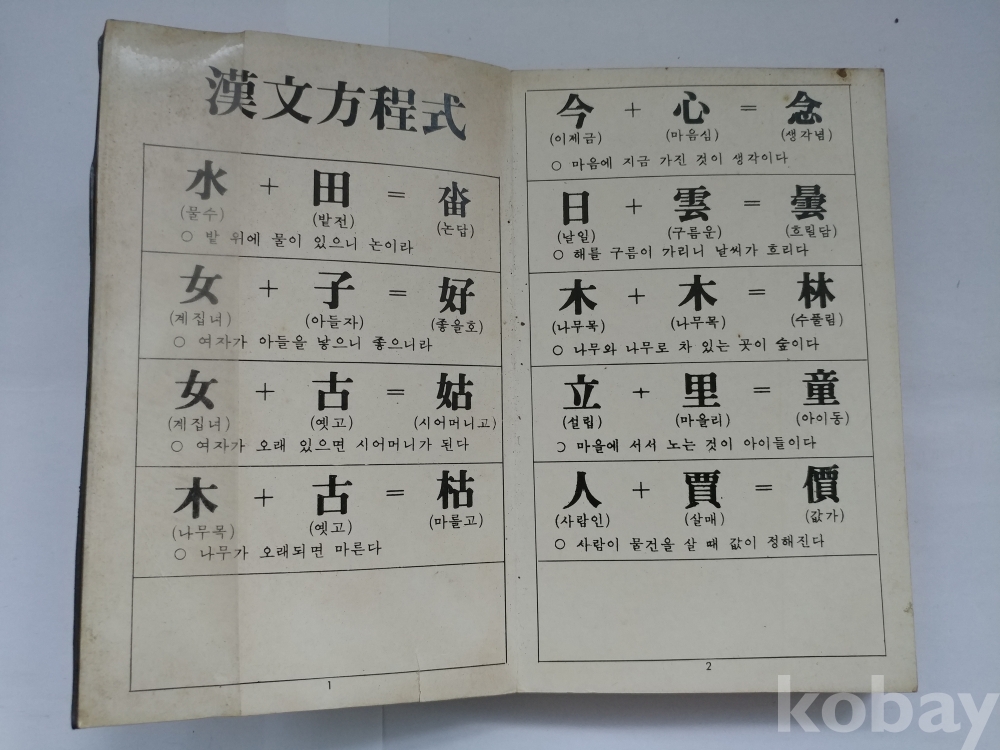 漢文方程式
水 + 田 = 畓
(물수) (밭전) (논답)
○ 밭 위에 물이 있으니 논이라
女 + 子 = 好
(계집녀) (아들자) (좋을호)
○ 여자가 아들을 낳으니 좋으니라
女 + 古 = 姑
(계집녀) (옛고) (시어머니고)
○ 여자가 오래 있으면 시어머니가 된다
木 + 古 = 枯
(나무목) (옛고) (마를고)
○ 나무가 오래되면 마른다
1
今 + 心 = 念
(이제금) (마음심) (생각념)
○ 마음에 지금 가진 것이 생각이다
日 + 雲 = 曇
(날일) (구름운) (흐릴담)
○ 해를 구름이 가리니 날씨가 흐리다
木 + 木 = 林
(나무목) (나무목) (수풀림)
○ 나무와 나무로 차 있는 곳이 숲이다
立 + 里 = 童
(설립) (마을리) (아이동)
○ 마을에 서서 노는 것이 아이들이다
人 + 買 = 價
(사람인) (살매) (값가)
○ 사람이 물건을 살 때 값이 정해진다
2
kobay